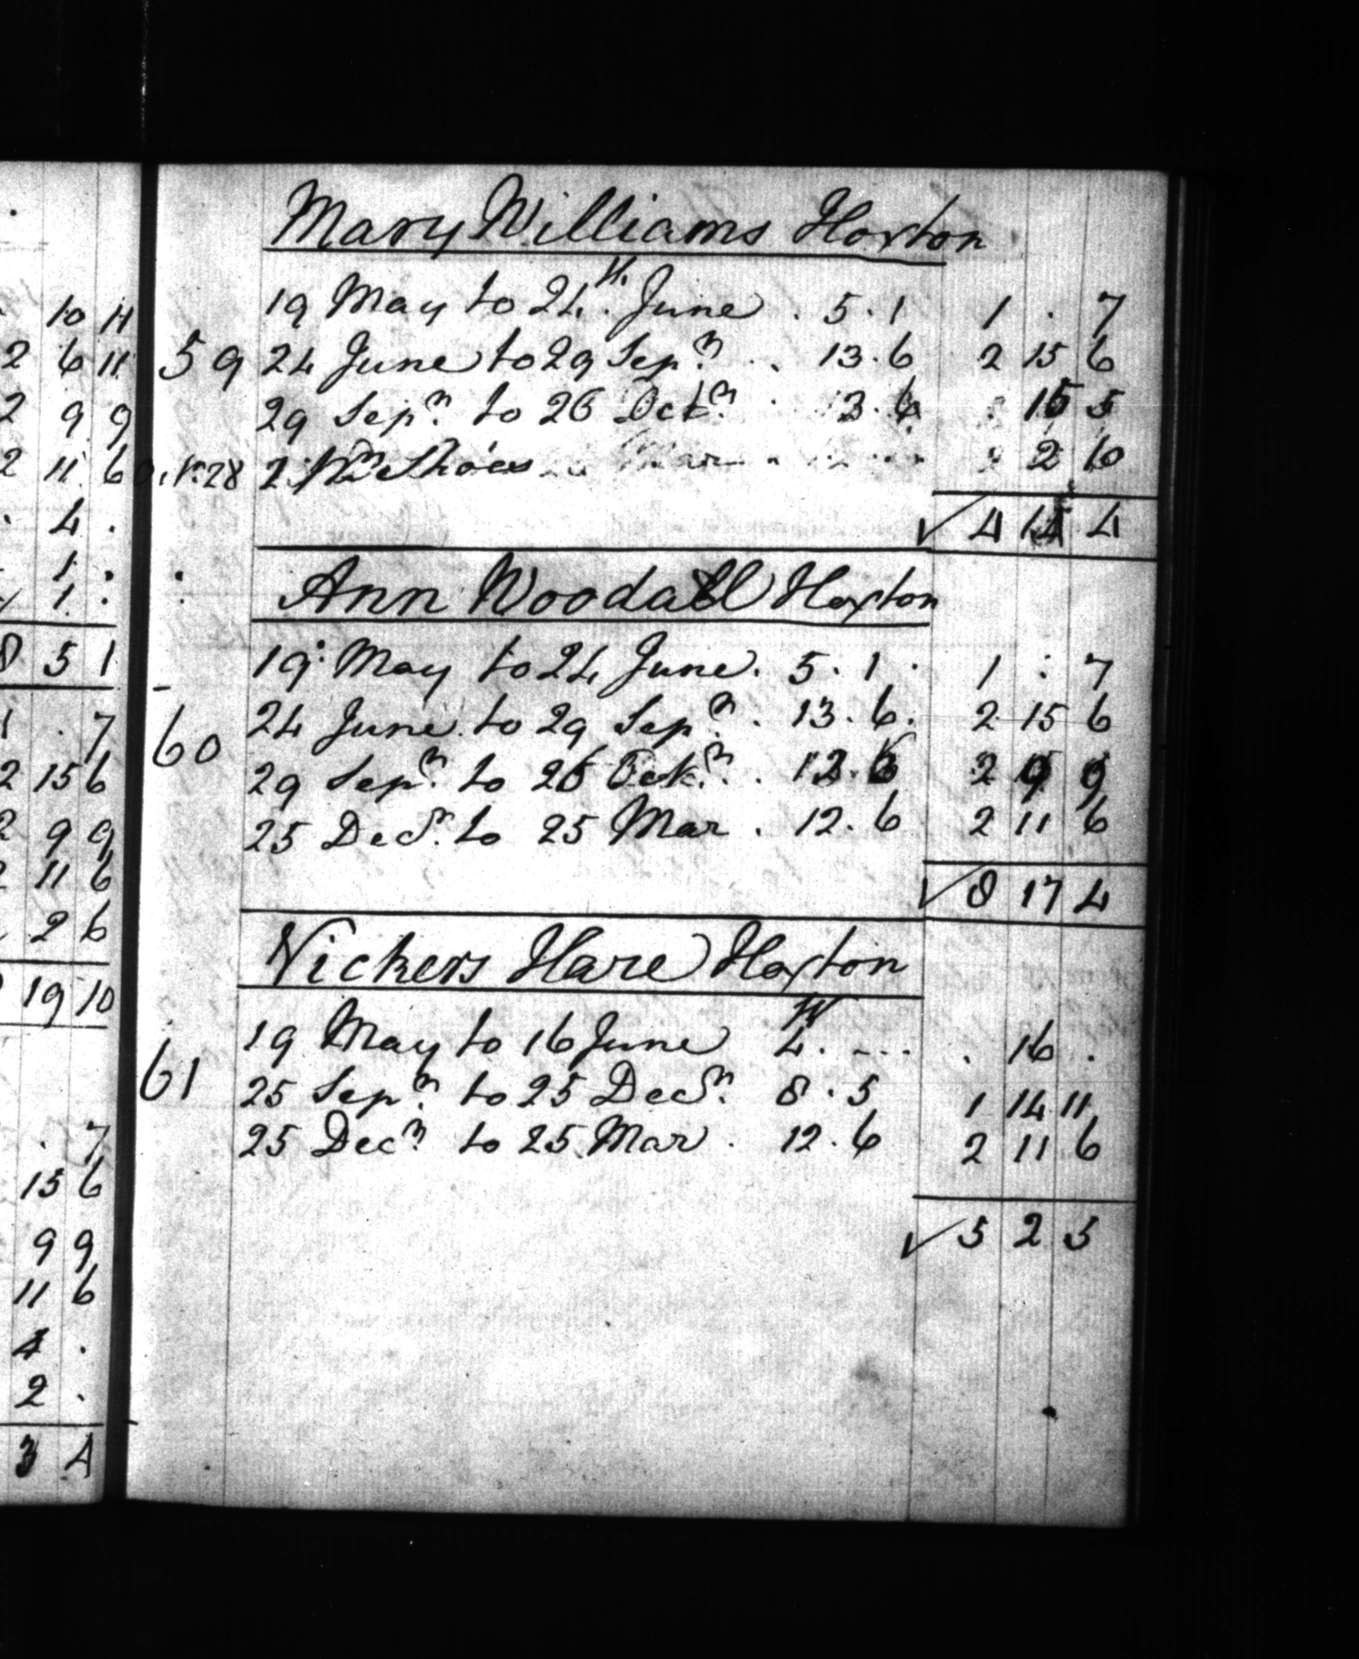 10 11
2 6 11
2 9 9
2 11 6
. 4 .
. 1 .
1 .
8 5 1
1 . 7
2 15 6
2 9 9
2 11 6
2 6
19 10
. 7
15 6
9 9
11 6
4 .
2 .
3 4
Mary Williams Hoxton
19 May to 24th June . 5 . 1 1 . 7
59 24 June to 29 Sepr . . 13 . 6 2 15 6
29 Sepr to 26 Octr . 3 . 6 15 5
28 2 Shoes 2 10
✓ 4 14 4
Ann Woodall Hoxton
19 May to 24 June . 5 . 1 . 1 . 7
60 24 June to 29 Sepr . 13 . 6 . 2 15 6
29 Sepr to 26 2 9 9
25 Decr to 25 Mar . 12 . 6 2 11 6
✓ 8 17 4
Vickers Hare Hoxton
19 May to 16 June W 4 . - - . . 16 .
61 25 Sepr to 25 Decr 8 . 5 1 14 11
25 Decr to 25 Mar . 12 . 6 2 11 6
✓ 5 2 5